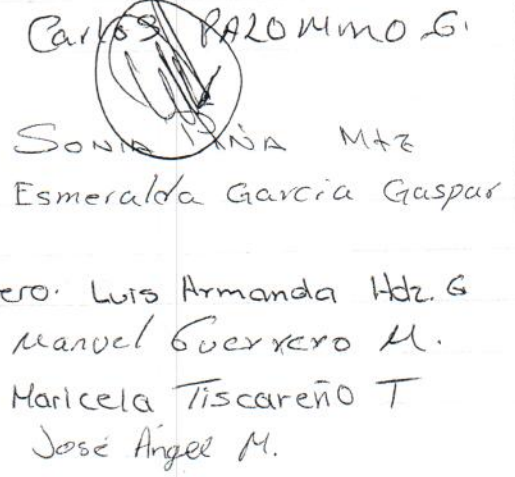 Carlos PALOMINO G.
SONIA PIÑA Mtz
Esmeralda García Gaspar
ero. Luis Armanda Hdz. G
Manuel Guerrero M.
Maricela Tiscareño T
José Ángel M.